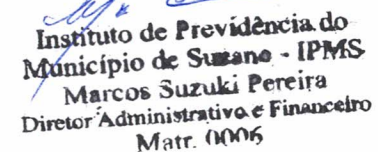 Instituto de Previdência do
Município de Suzano - IPMS
Marcos Suzuki Pereira
Diretor Administrativo e Financeiro
Matr. 0006